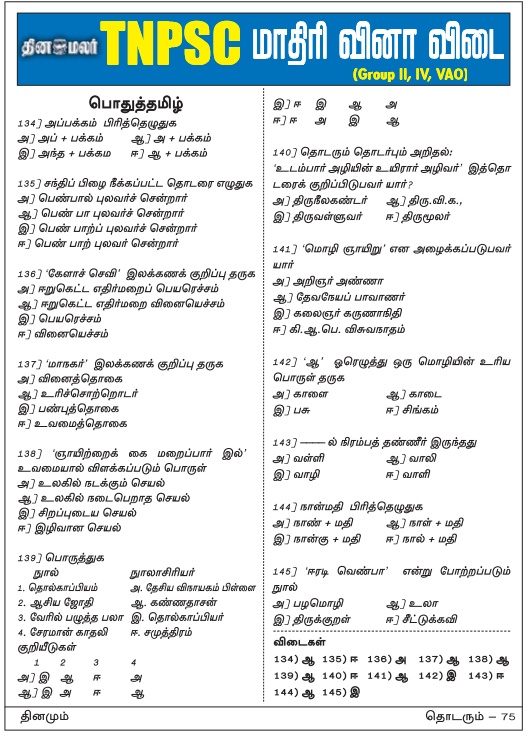 தினமலர் TNPSC மாதிரி வினா விடை
(Group II, IV, VAO)
பொதுத்தமிழ்
134) அப்பக்கம் பிரித்தெழுதுக
அ) அப் + பக்கம் ஆ) அ + பக்கம்
இ) அந்த + பக்கம ஈ) ஆ + பக்கம்
135) சந்திப் பிழை நீக்கப்பட்ட தொடரை எழுதுக
அ) பெண்பால் புலவர்ச் சென்றார்
ஆ) பெண் பா புலவர்ச் சென்றார்
இ) பெண் பாற்ப் புலவர்ச் சென்றார்
ஈ) பெண் பாற் புலவர் சென்றார்
136) 'கேளாச் செவி' இலக்கணக் குறிப்பு தருக
அ) ஈறுகெட்ட எதிர்மறைப் பெயரெச்சம்
ஆ) ஈறுகெட்ட எதிர்மறை வினையெச்சம்
இ) பெயரெச்சம்
ஈ) வினையெச்சம்
137) 'மாநகர்' இலக்கணக் குறிப்பு தருக
அ) வினைத்தொகை
ஆ) உரிச்சொற்றொடர்
இ) பண்புத்தொகை
ஈ) உவமைத்தொகை
138) 'ஞாயிற்றைக் கை மறைப்பார் இல்'
உவமையால் விளக்கப்படும் பொருள்
அ) உலகில் நடக்கும் செயல்
ஆ) உலகில் நடைபெறாத செயல்
இ) சிறப்புடைய செயல்
ஈ) இழிவான செயல்
139) பொருத்துக
நூல் நூலாசிரியர்
1. தொல்காப்பியம் அ. தேசிய விநாயகம் பிள்ளை
2. ஆசிய ஜோதி ஆ. கண்ணதாசன்
3. வேரில் பழுத்த பலா இ. தொல்காப்பியர்
4. சேரமான் காதலி ஈ. சமுத்திரம்
குறியீடுகள்
1 2 3 4
அ) இ ஆ ஈ அ
ஆ) இ அ ஈ ஆ
இ) ஈ இ ஆ அ
ஈ) ஈ அ இ ஆ
140) தொடரும் தொடர்பும் அறிதல்:
'உடம்பார் அழியின் உயிரார் அழிவர்' இத்தொ
டரைக் குறிப்பிடுபவர் யார்?
அ) திருநீலகண்டர் ஆ) திரு.வி.க.,
இ) திருவள்ளுவர் ஈ) திருமூலர்
141) 'மொழி ஞாயிறு' என அழைக்கப்படுபவர்
யார்
அ) அறிஞர் அண்ணா
ஆ) தேவநேயப் பாவாணர்
இ) கலைஞர் கருணாநிதி
ஈ) கி.ஆ.பெ. விசுவநாதம்
142) 'ஆ' ஓரெழுத்து ஒரு மொழியின் உரிய
பொருள் தருக
அ) காளை ஆ) காடை
இ) பசு ஈ) சிங்கம்
143) ——— ல் நிரம்பத் தண்ணீர் இருந்தது
அ) வள்ளி ஆ) வாலி
இ) வாழி ஈ) வாளி
144) நான்மதி பிரித்தெழுதுக
அ) நாண் + மதி ஆ) நாள் + மதி
இ) நான்கு + மதி ஈ) நால் + மதி
145) 'ஈரடி வெண்பா' என்று போற்றப்படும்
நூல்
அ) பழமொழி ஆ) உலா
இ) திருக்குறள் ஈ) சீட்டுக்கவி
விடைகள்
134) ஆ 135) ஈ 136) அ 137) ஆ 138) ஆ
139) ஆ 140) ஈ 141) ஆ 142) இ 143) ஈ
144) ஆ 145) இ
தினமும் தொடரும் – 75